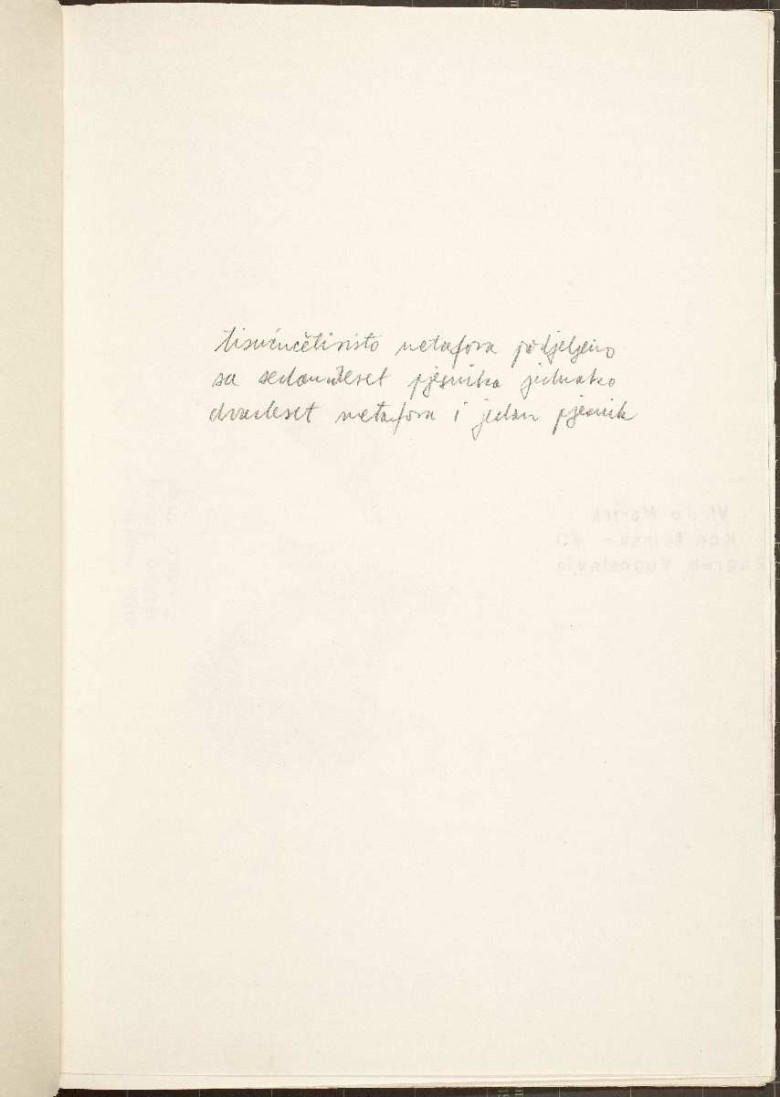 tisućučetiristo metafora podjeljeno
sa sedamdeset pjesnika jednako
dvadeset metafora i jedan pjesnik
Zagreb Yugoslavia